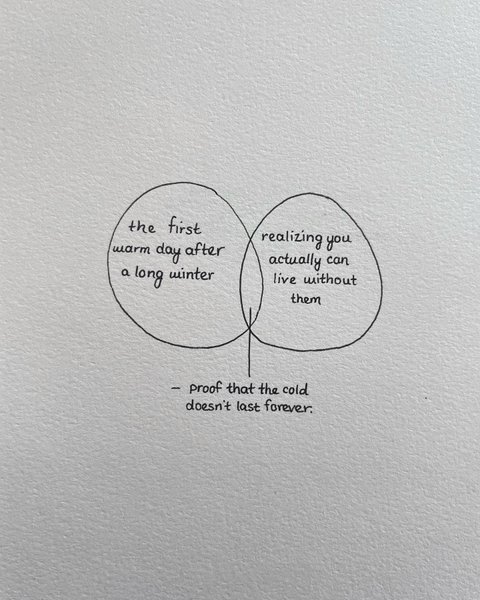 the first
warm day after
a long winter
realizing you
actually can
live without
them
– proof that the cold
doesn't last forever.